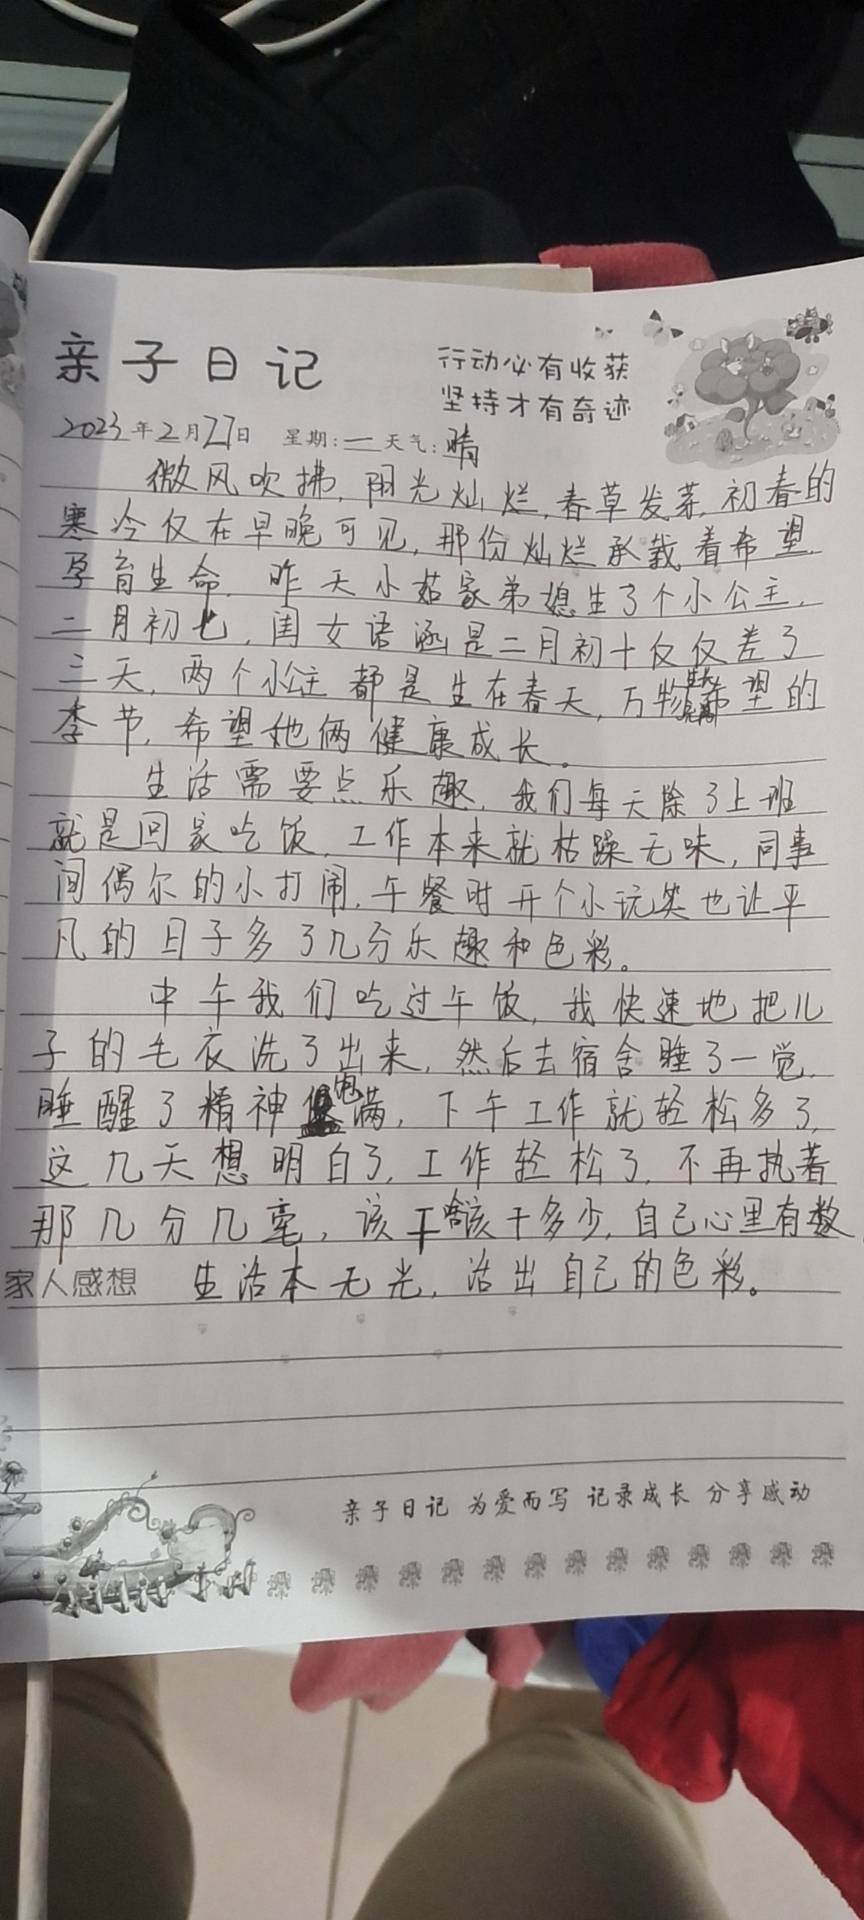 亲子日记
行动必有收获
坚持才有奇迹
2023年2月27日 星期:一天气:晴
微风吹拂,阳光灿烂,春草发芽,初春的
寒冷仅在早晚可见,那份灿烂承载着希望,
孕育生命,昨天小茹家弟媳生了个小公主,
二月初七,闺女语涵是二月初十仅仅差了
三天,两个小公主都是生在春天,万物生长充满希望的
季节,希望她俩健康成长。
生活需要点乐趣,我们每天除了上班
就是回家吃饭,工作本来就枯躁无味,同事
间偶尔的小打闹,午餐时开个小玩笑也让平
凡的日子多了几分乐趣和色彩。
中午我们吃过午饭,我快速地把儿
子的毛衣洗了出来,然后去宿舍睡了一觉,
睡醒了精神饱满,下午工作就轻松多了,
这几天想明白了,工作轻松了,不再执着
那几分几毫,该干啥该干多少,自己心里有数
家人感想 生活本无光,活出自己的色彩。
亲子日记 为爱而写 记录成长 分享感动